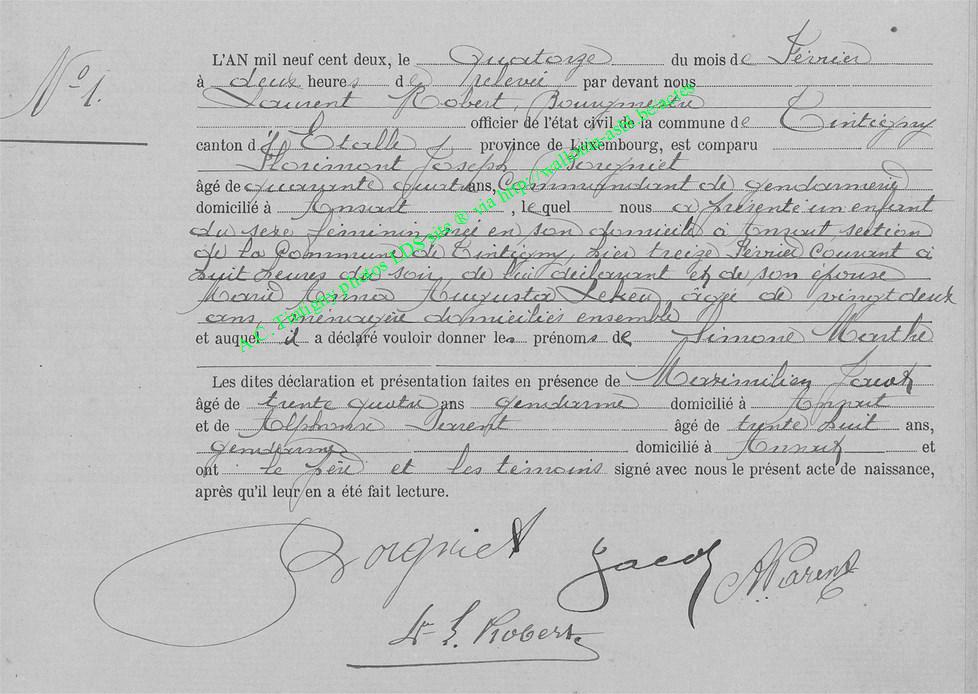 N° 1.
L'AN mil neuf cent deux, le quatorze du mois de Février
à deux heures de relevée par devant nous
Laurent Robert, Bourgmestre
officier de l'état civil de la commune de Tintigny
canton d'Etalle province de Luxembourg, est comparu
Florimont Joseph Borgniet
âgé de quarante quatre ans, Commandant de gendarmerie
domicilié à Ansart, lequel nous a présenté un enfant
du sexe féminin, né en son domicile à Ansart, section
de la Commune de Tintigny, hier treize Février Courant à
huit heures du soir, de lui déclarant et de son épouse
Marie Anna Augusta Lekeu âgée de vingt deux
ans, ménagère domiciliés ensemble
et auquel il a déclaré vouloir donner les prénoms de Simone Marthe
Les dites déclaration et présentation faites en présence de Maximilien Jacob
âgé de trente quatre ans gendarme domicilié à Ansart
et de Alphonse Parent âgé de trente huit ans,
gendarme domicilié à Ansart et
ont le père et les témoins signé avec nous le présent acte de naissance,
après qu'il leur en a été fait lecture.
Borgniet Jacob A. Parent
L. Robert
A.C. Tintigny photos LDS site ® via http://wallonia-asbl.be/actes